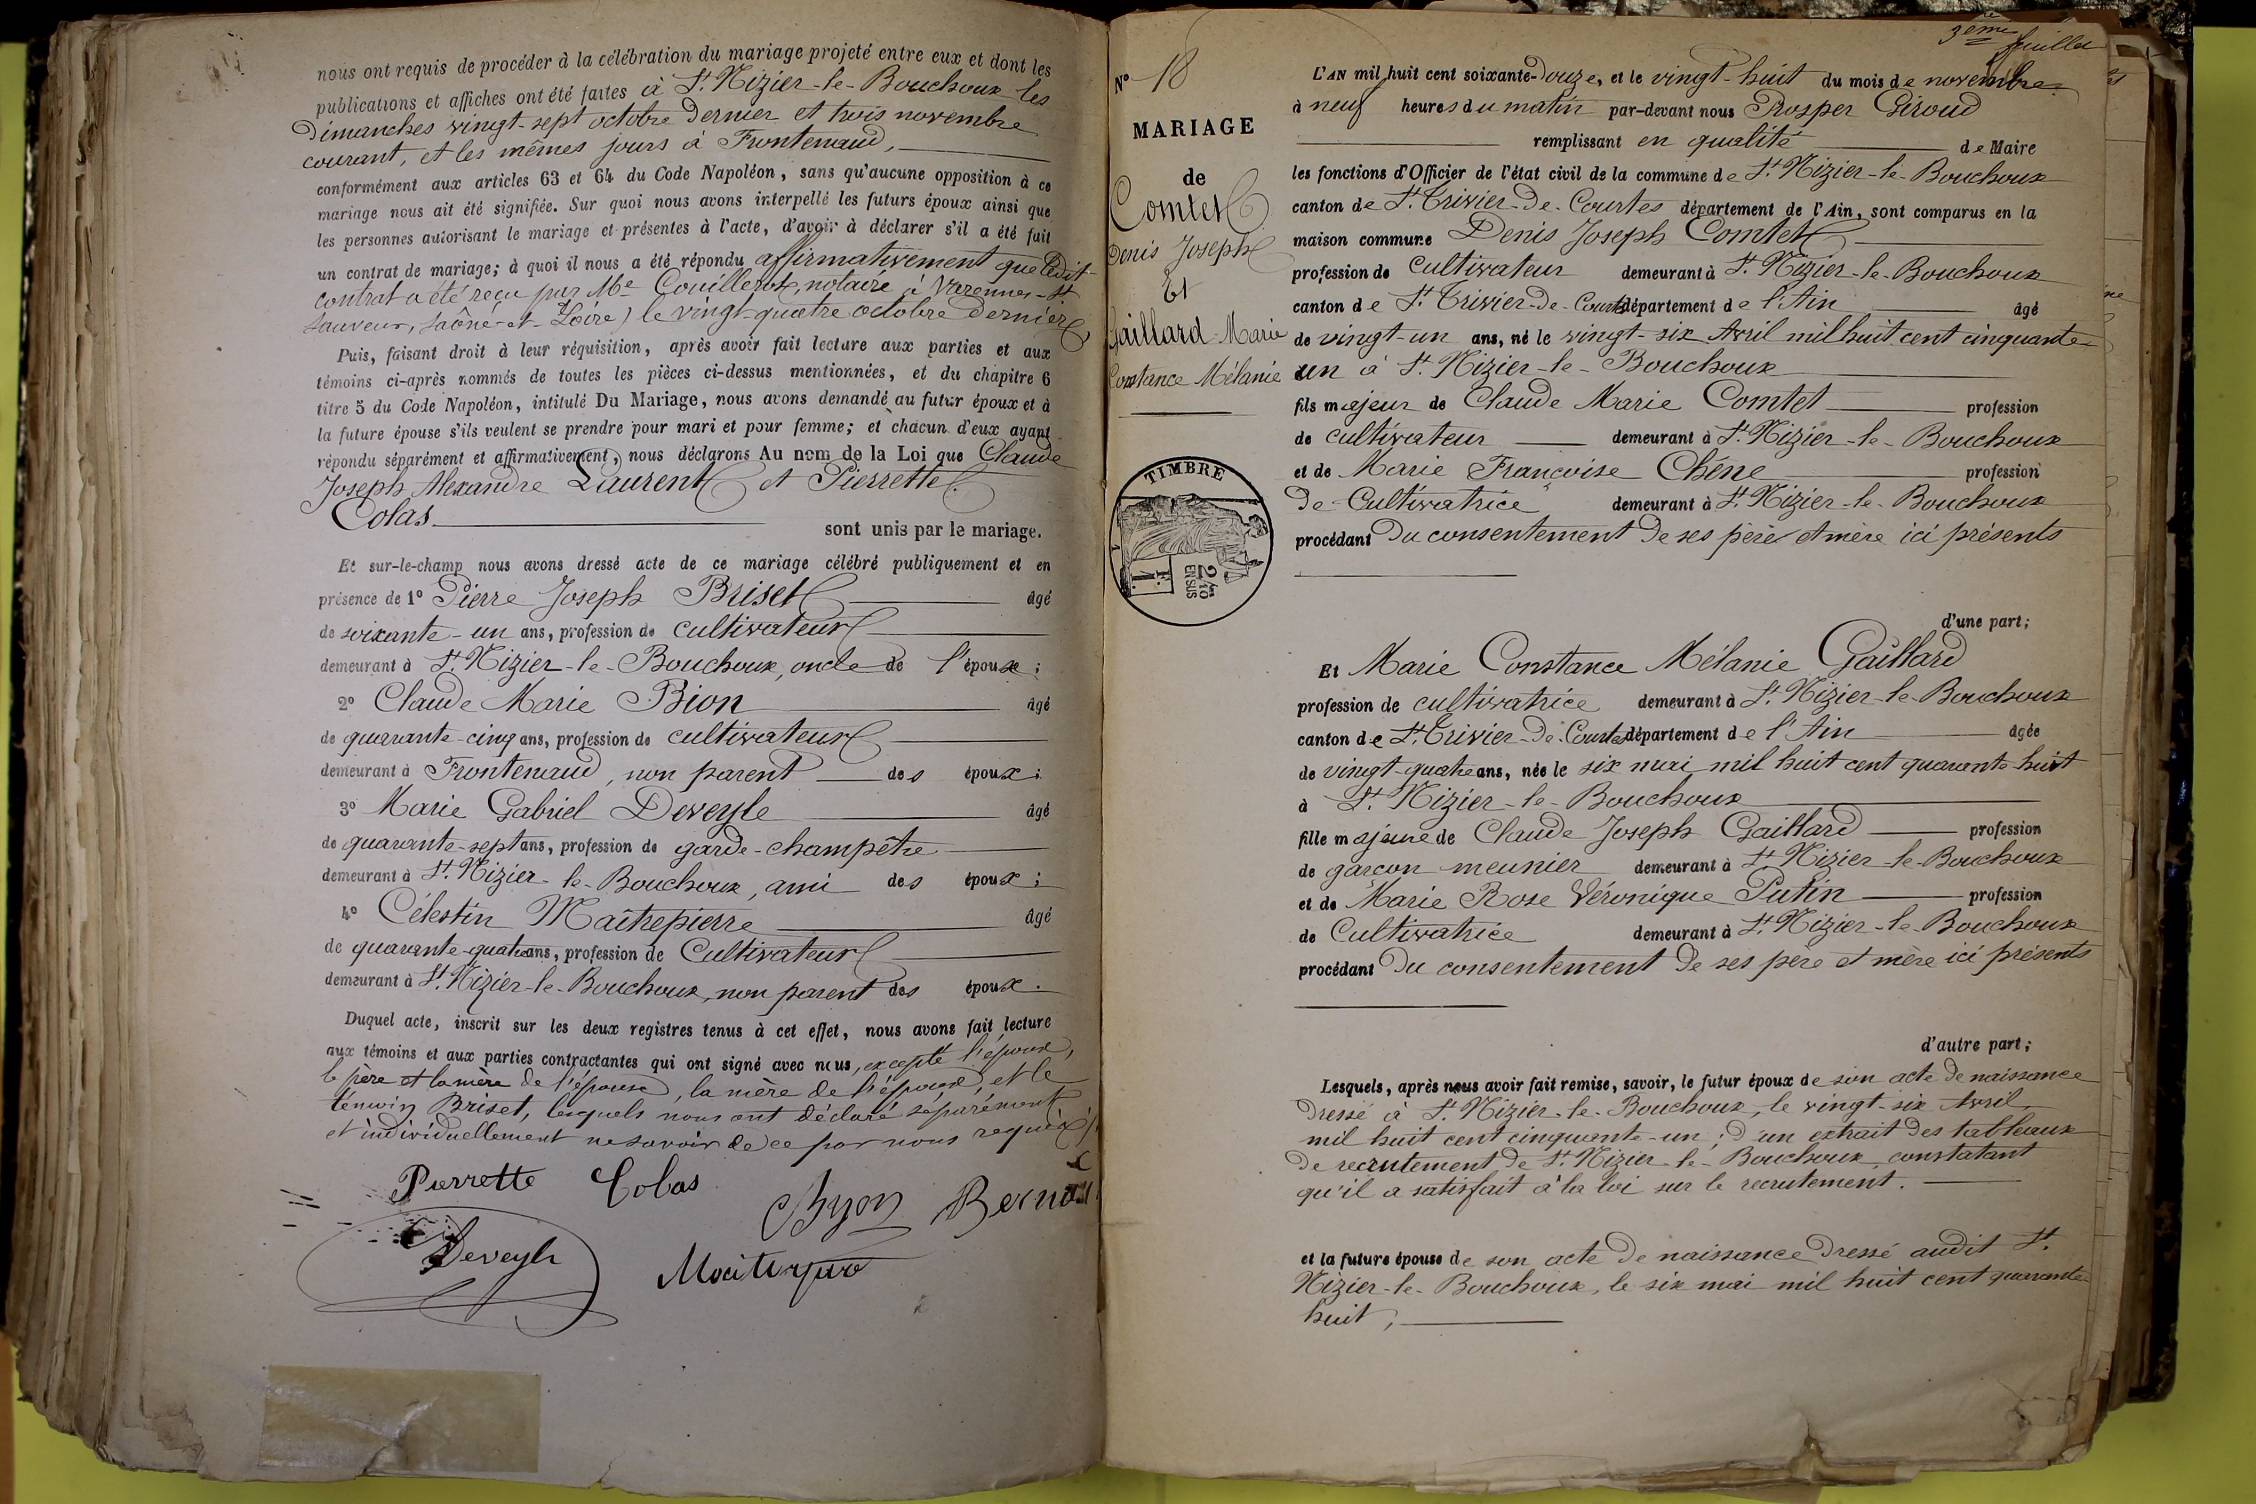 nous ont requis de procéder à la célébration du mariage projeté entre eux et dont les
publications et affiches ont été faites à St. Nizier-le-Bouchoux les
dimanches vingt-sept octobre dernier et trois novembre
courant, et les mêmes jours à Frontenaud,
conformément aux articles 63 et 64 du Code Napoléon, sans qu'aucune opposition à ce
mariage nous ait été signifiée. Sur quoi nous avons interpellé les futurs époux ainsi que
les personnes autorisant le mariage et présentes à l'acte, d'avoir à déclarer s'il a été fait
un contrat de mariage; à quoi il nous a été répondu affirmativement que ledit
contrat a été reçu par Me Couillerot, notaire à Varennes-St.
Sauveur, Saône-et-Loire) le vingt-quatre octobre dernier,
Puis, faisant droit à leur réquisition, après avoir fait lecture aux parties et aux
témoins ci-après nommés de toutes les pièces ci-dessus mentionnées, et du chapitre 6
titre 5 du Code Napoléon, intitulé Du Mariage, nous avons demandé au futur époux et à
la future épouse s'ils veulent se prendre pour mari et pour femme; et chacun d'eux ayant
répondu séparément et affirmativement, nous déclarons Au nom de la Loi que Claude
Joseph Alexandre Laurent et Pierrette
Colas
sont unis par le mariage.
Et sur-le-champ nous avons dressé acte de ce mariage célébré publiquement et en
présence de 1° Pierre Joseph Briset âgé
de soixante-un ans, profession de cultivateur
demeurant à St. Nizier-le-Bouchoux, oncle de l'épouse;
2° Claude Marie Bion âgé
de quarante-cinq ans, profession de cultivateur
demeurant à Frontenaud, non parent des époux;
3° Marie Gabriel Deveyle âgé
de quarante-sept ans, profession de garde-champêtre
demeurant à St. Nizier-le-Bouchoux, ami des époux;
4° Célestin Maîtrepierre âgé
de quarante-quatre ans, profession de Cultivateur
demeurant à St. Nizier-le-Bouchoux, non parent des époux.
Duquel acte, inscrit sur les deux registres tenus à cet effet, nous avons fait lecture
aux témoins et aux parties contractantes qui ont signé avec nous, excepté l'époux,
le père et la mère de l'épouse, la mère de l'époux, et le
témoin Briset, lesquels nous ont déclaré séparément
et individuellement ne savoir de ce par nous requis
Pierrette Colas
Byon
Deveyle
N° 18
MARIAGE
de
Comtet
Denis Joseph
Et
Gaillard Marie
Constance Mélanie
TIMBRE
1 F.
2/10 EN SUS
3ème feuillet
L'AN mil huit cent soixante-Douze, et le vingt-huit du mois de novembre
à neuf heures du matin par-devant nous Prosper Giroud
remplissant en qualité de Maire
les fonctions d'Officier de l'état civil de la commune de St. Nizier-le-Bouchoux
canton de St. Trivier-de-Courtes département de l'Ain, sont comparus en la
maison commune Denis Joseph Comtet
profession de Cultivateur demeurant à St. Nizier-le-Bouchoux
canton de St. Trivier-de-Courtes département de l'Ain âgé
de vingt-un ans, né le vingt-six Avril mil huit cent cinquante-
un à St. Nizier-le-Bouchoux
fils majeur de Claude Marie Comtet profession
de cultivateur demeurant à St. Nizier-le-Bouchoux
et de Marie Françoise Chêne profession
de Cultivatrice demeurant à St. Nizier-le-Bouchoux
procédant du consentement de ses père et mère ici présents
d'une part;
Et Marie Constance Mélanie Gaillard
profession de cultivatrice demeurant à St. Nizier-le-Bouchoux
canton de St. Trivier-de-Courtes département de l'Ain âgée
de vingt-quatre ans, née le six mai mil huit cent quarante huit
à St. Nizier-le-Bouchoux
fille majeure de Claude Joseph Gaillard profession
de garçon meunier demeurant à St. Nizier-le-Bouchoux
et de Marie Rose Véronique Putin profession
de Cultivatrice demeurant à St. Nizier-le-Bouchoux
procédant du consentement de ses père et mère ici présents
d'autre part;
Lesquels, après nous avoir fait remise, savoir, le futur époux de son acte de naissance
dressé à St. Nizier-le-Bouchoux, le vingt-six Avril
mil huit cent cinquante-un; d'un extrait des tableaux
de recrutement de St. Nizier-le-Bouchoux, constatant
qu'il a satisfait à la loi sur le recrutement.
et la future épouse de son acte de naissance dressé audit St.
Nizier-le-Bouchoux, le six mai mil huit cent quarante-
huit;